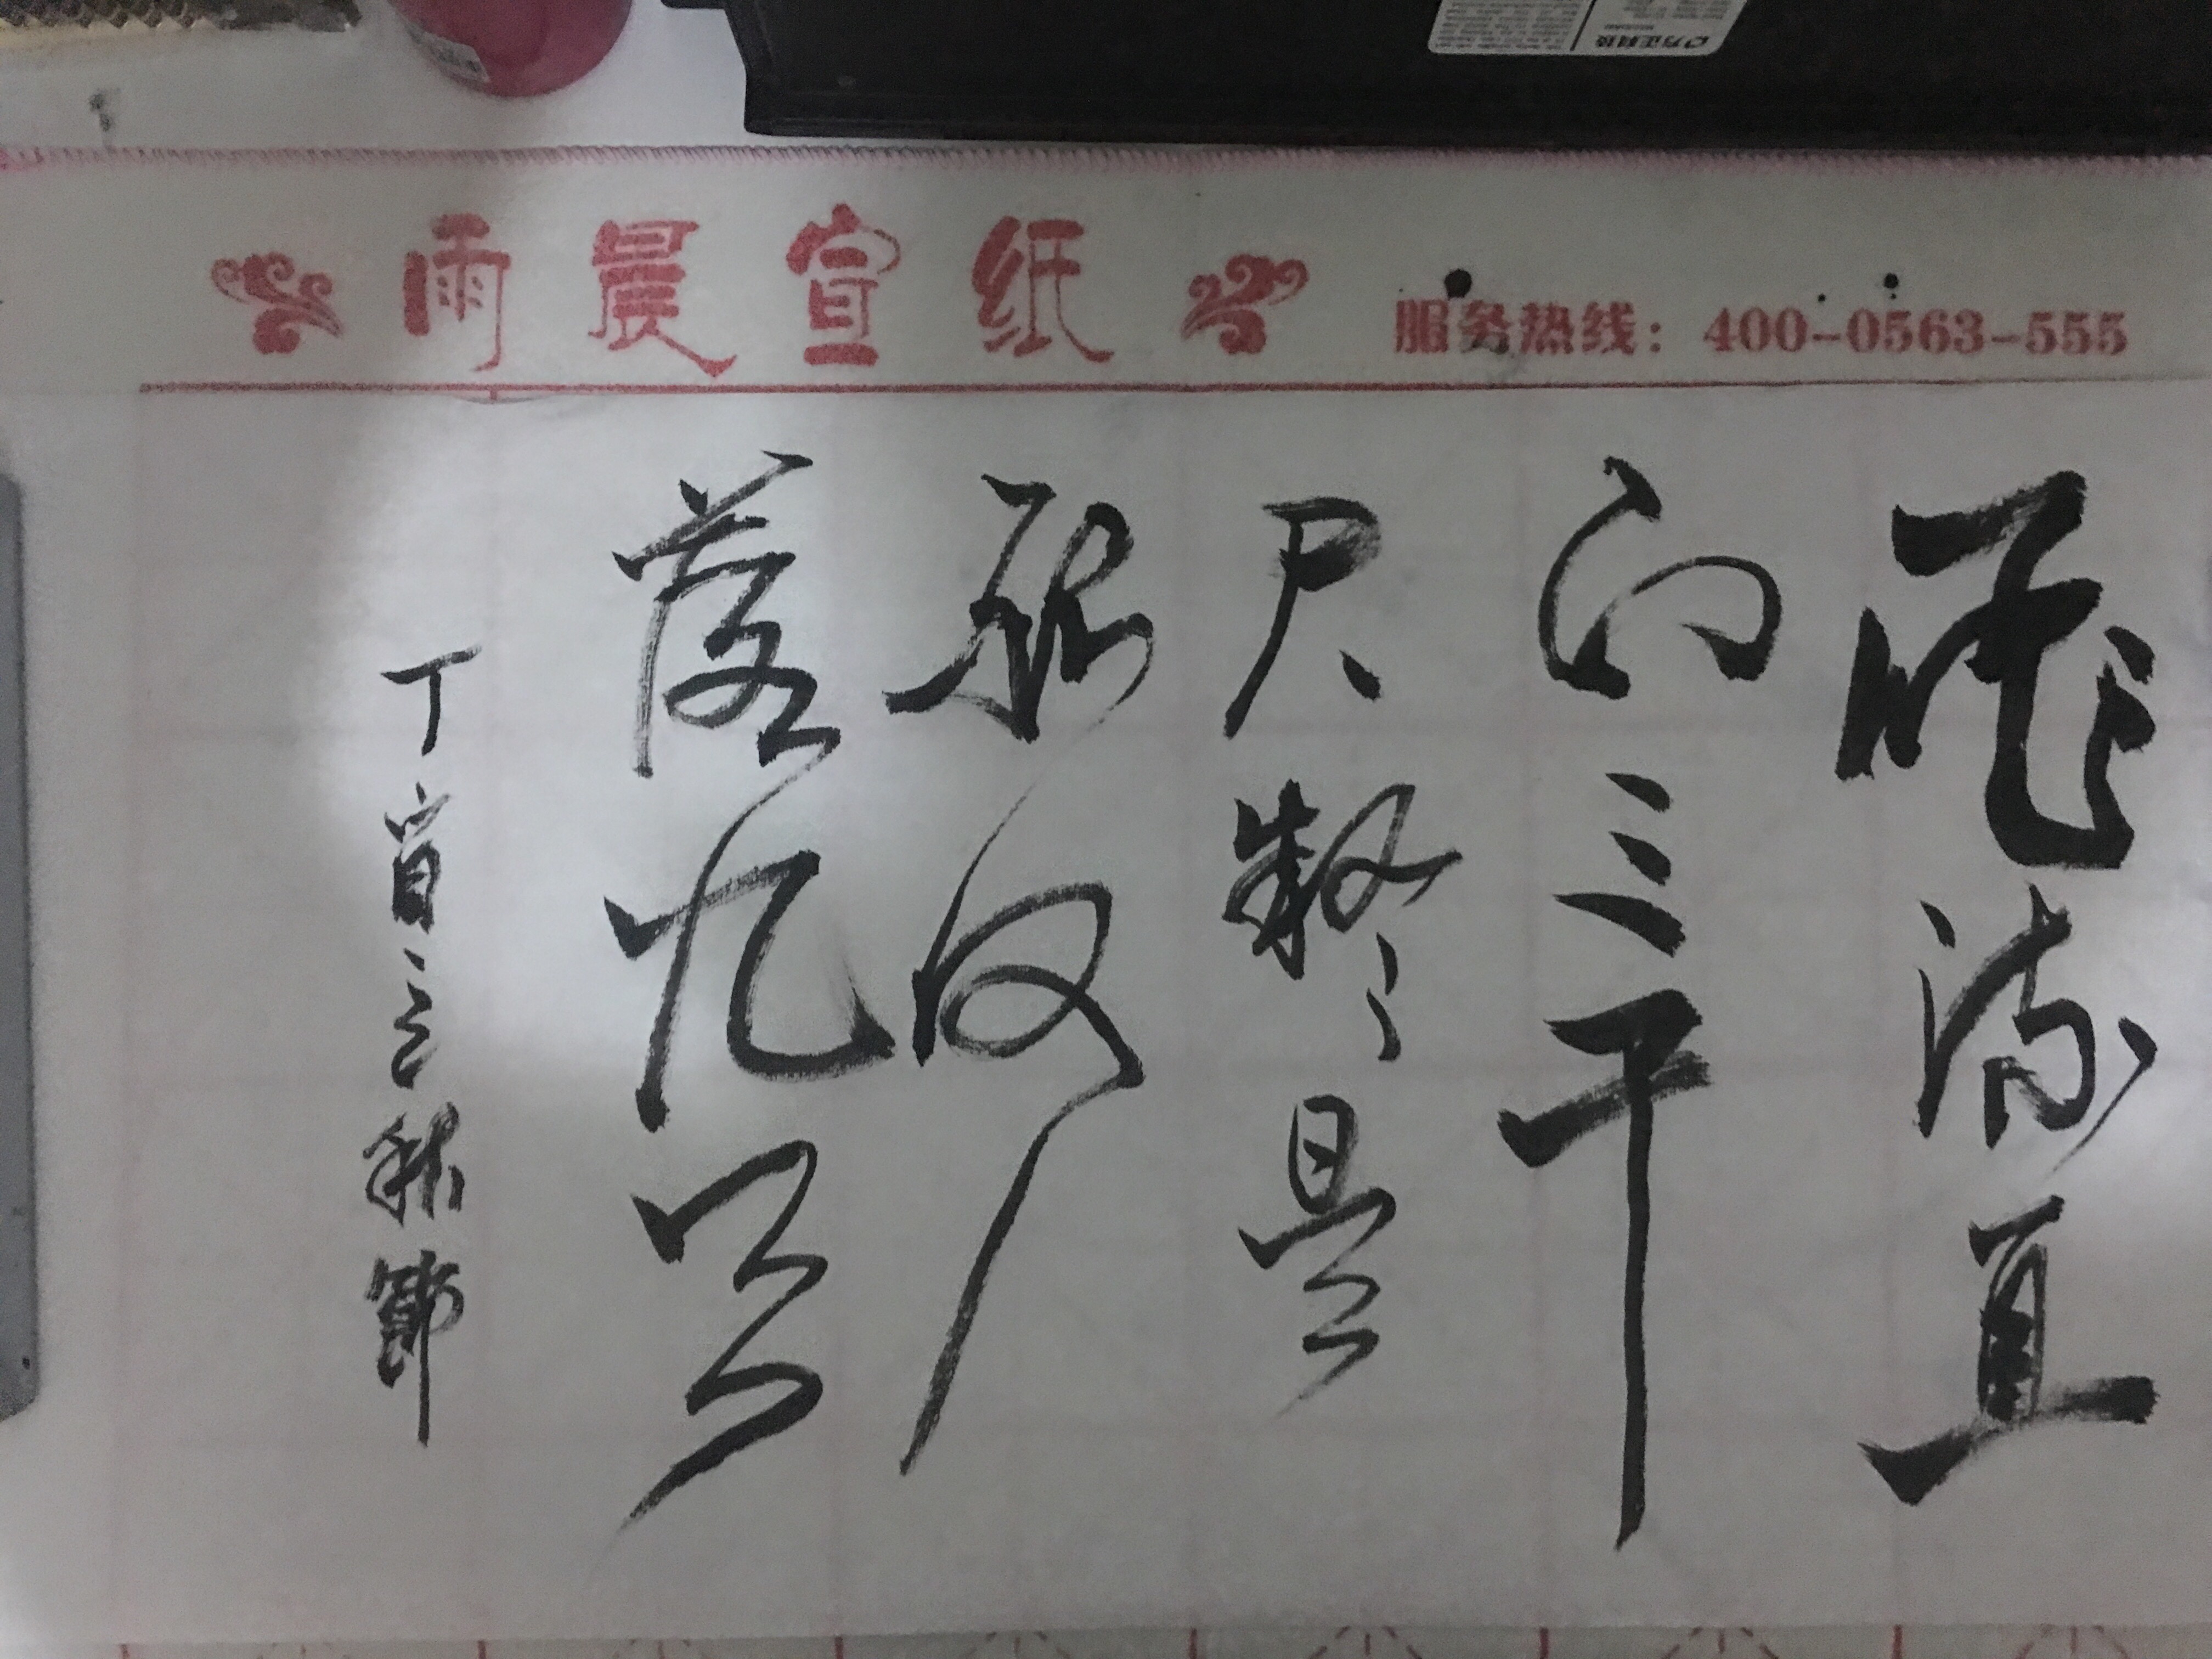 方正科技
雨晨宣纸
服务热线：400-0563-555
飛流直
下三千
尺疑是
銀河
落九天
丁酉之秋節